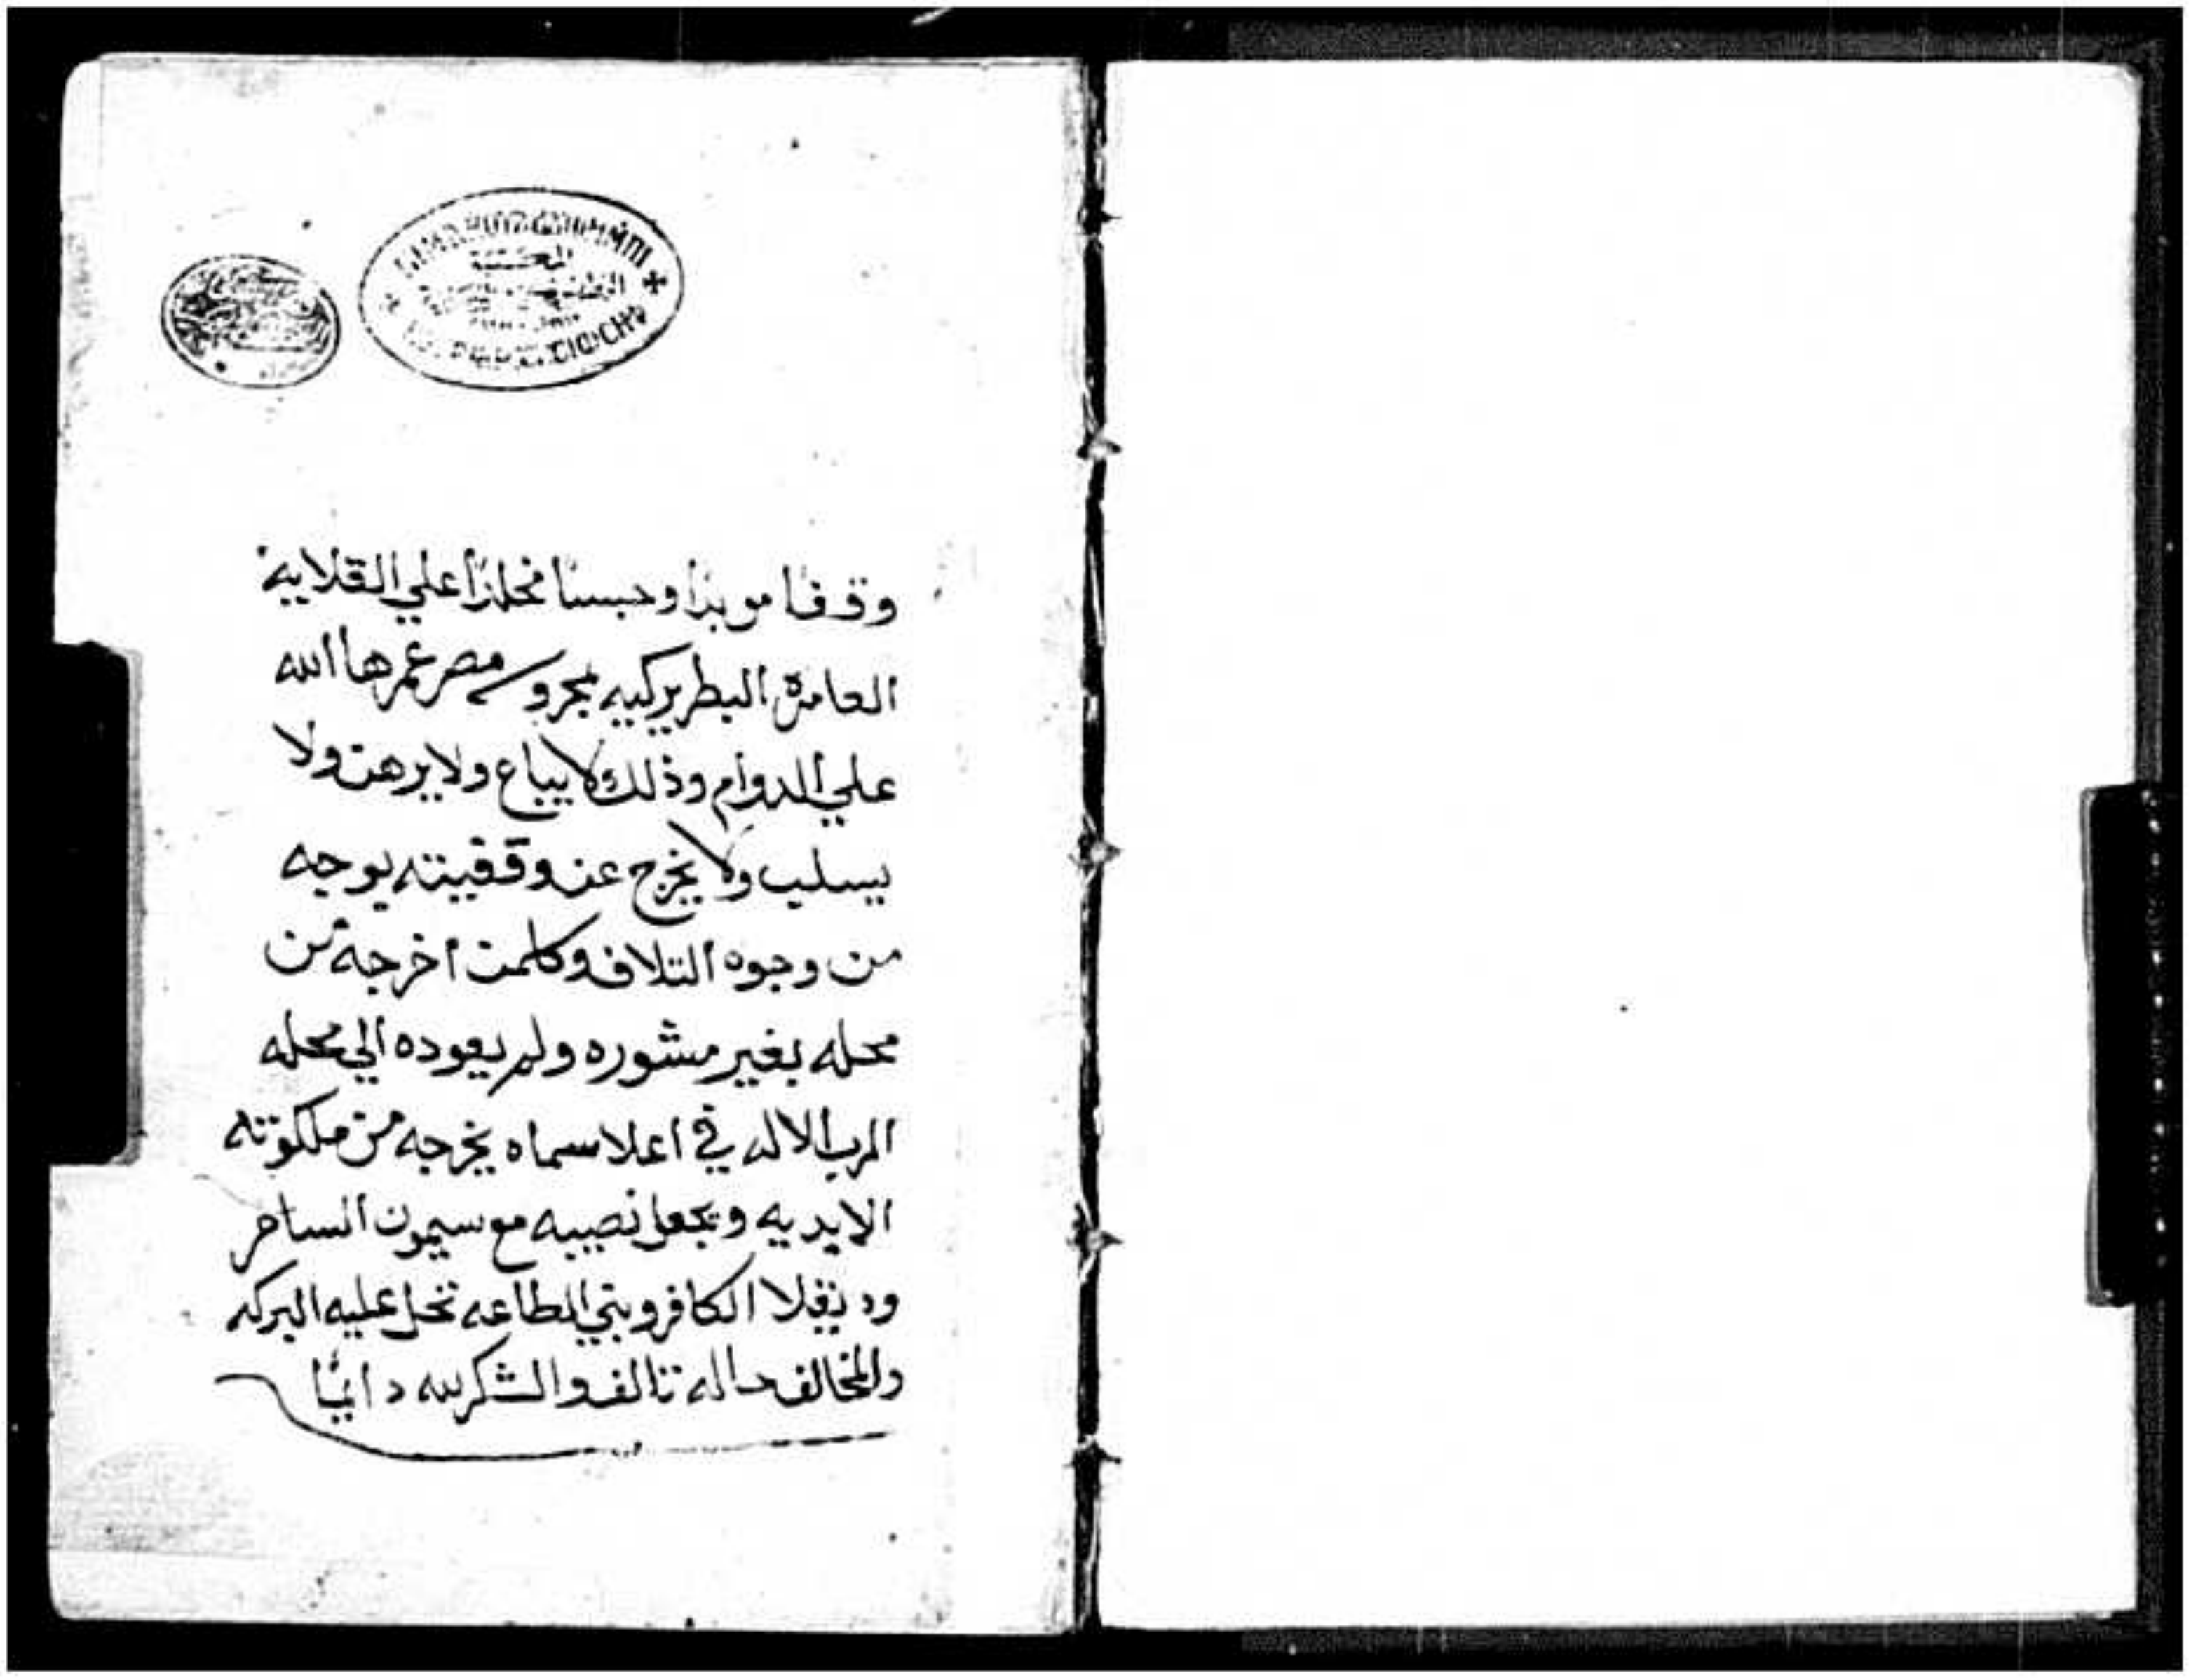 المكتبة
وقفا موبدا وحبسا مخلدا علي القلايه
العامرة البطريركيه بمحروسة مصر عمرها الله
علي الدوام وذلك لا يباع ولا يرهن ولا
يسلب ولا يخرج عن وقفيته بوجه
من وجوه التلاف وكلمن اخرجه من
محله بغير مشوره ولم يعوده الي محله
الرب الاله في اعلا سماه يخرجه من ملكوته
الابديه ويجعل نصيبه مع سيمون الساحر
ودنقلا الكافر وبني الطاعه تحل عليه البركه
والمخالف حاله تالف والشكر لله دائما